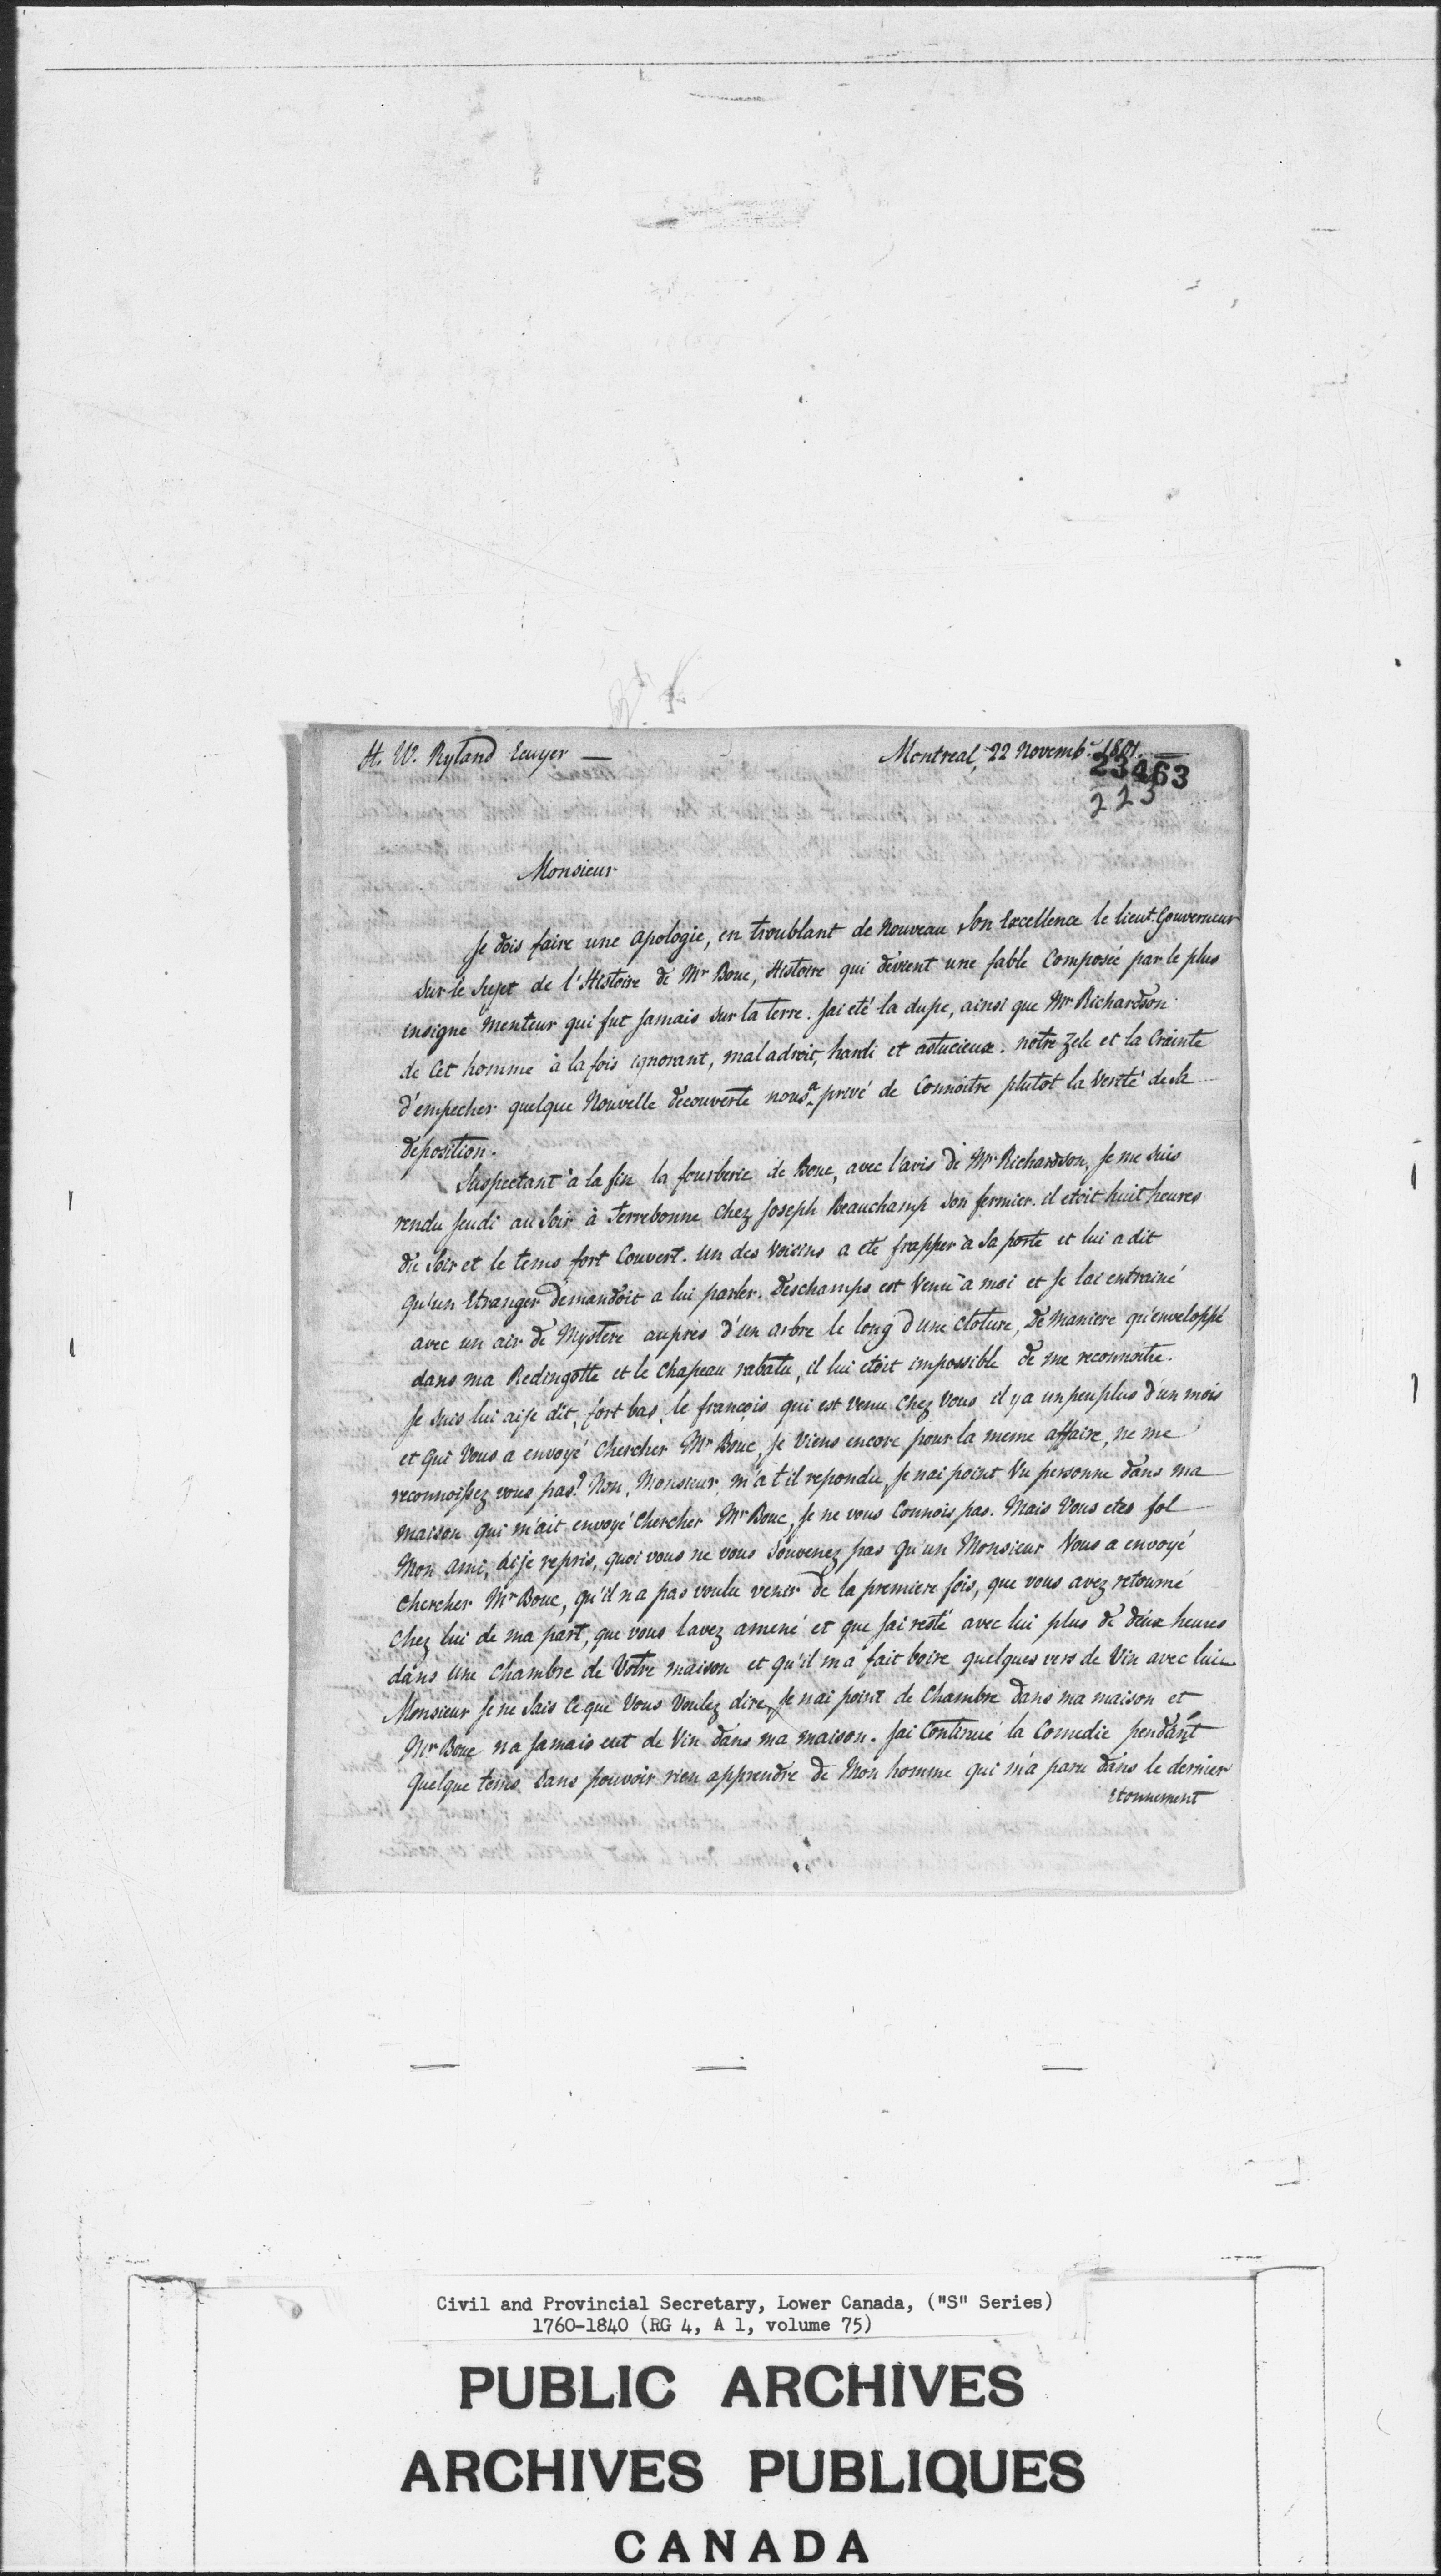 H. W. Ryland Ecuyer —
Montreal, 22 Novemb.r 1801. —
23463
223
Monsieur
Je dois faire une apologie, en troublant de Nouveau Son Excellence le lieut. Gouverneur
sur le Sujet de l'Histoire de Mr Bouc, Histoire qui devient une fable Composée par le plus
insigne Menteur qui fut Jamais sur la terre. Jai eté la dupe, ainsi que Mr Richardson
de Cet homme à la fois ignorant, maladroit, hardi et astucieux. notre Zele et la Crainte
d'empecher quelque Nouvelle decouverte nous a privé de Connoitre plutot la Verité de sa
deposition.
Suspectant à la fin la fourberie de Bouc, avec l'avis de Mr Richardson, Je me suis
rendu Jeudi au Soir à Terrebonne chez Joseph Beauchamp son fermier. il etoit huit heures
du Soir et le tems fort Couvert. Un des Voisins a eté frapper à Sa porte et lui a dit
qu'un Etranger demandoit a lui parler. Deschamps est Venu a moi et Je lai entrainé
avec un air de Mystere aupres d'un arbre le long d'une cloture, De maniere qu'enveloppé
dans ma Redingotte et le Chapeau rabatu, il lui etoit impossible de me reconnoitre.
Je suis lui aije dit, fort bas, le francois qui est venu chez Vous il y a un peu plus d'un mois
et qui Vous a envoyé chercher Mr Bouc, Je Viens encore pour la meme affaire, ne me
reconnoissez vous pas? Non, Monsieur, m'a t'il repondu, Je nai point Vu personne dans ma
maison qui m'ait envoyé chercher Mr Bouc, Je ne vous Connois pas. Mais Vous etes fol
Mon ami, aije repris, quoi vous ne vous Souvenez pas qu'un Monsieur Vous a envoyé
chercher Mr Bouc, qu'il n'a pas voulu venir de la premiere fois, que vous avez retourné
chez lui de ma part, que vous lavez amené et que Jai resté avec lui plus de deux heures
dans une chambre de Votre maison et qu'il m'a fait boire quelques vers de Vin avec lui
Monsieur Je ne Sais Ce que Vous Voulez dire, Je nai point de Chambre dans ma maison et
Mr Bouc na Jamais eut de Vin dans ma maison. Jai Continué la Comedie pendant
Quelque tems Sans pouvoir rien apprendre de Mon homme qui m'a paru dans le dernier
etonnement
Civil and Provincial Secretary, Lower Canada, ("S" Series)
1760-1840 (RG 4, A 1, volume 75)
PUBLIC ARCHIVES
ARCHIVES PUBLIQUES
CANADA